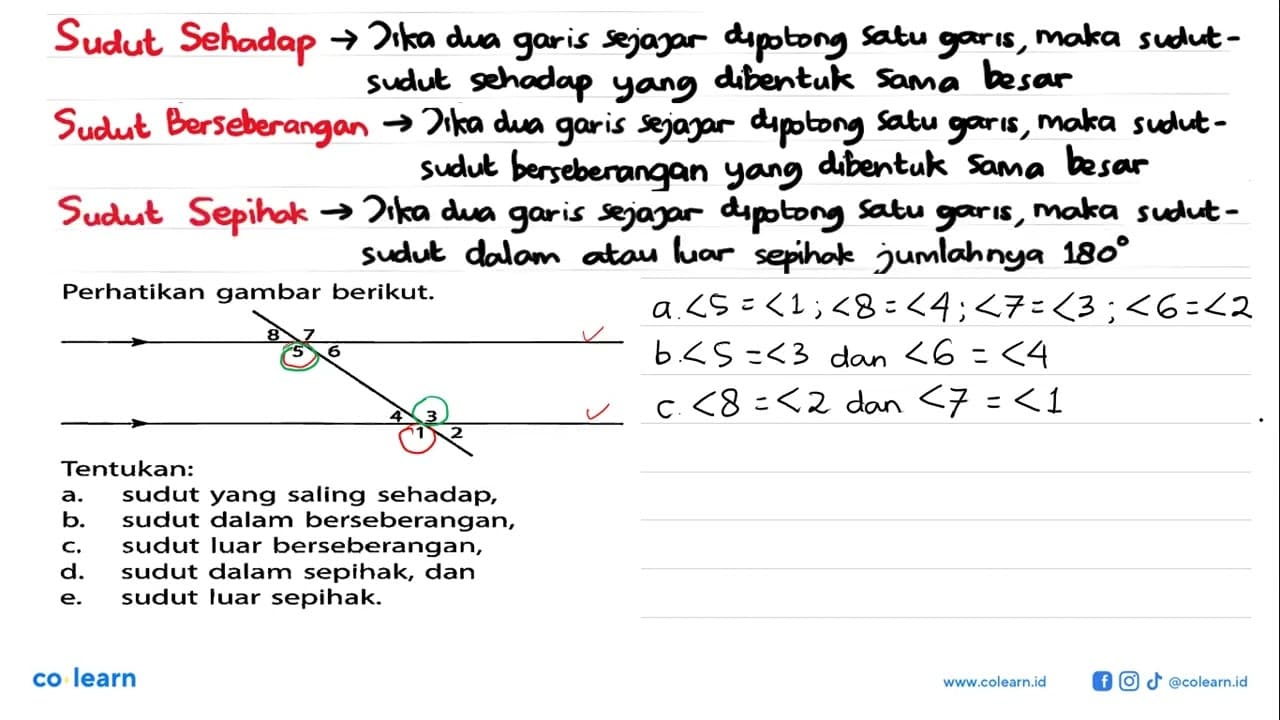 Sudut Sehadap → Jika dua garis sejajar dipotong satu garis, maka sudut-
sudut sehadap yang dibentuk sama besar
Sudut Berseberangan → Jika dua garis sejajar dipotong satu garis, maka sudut-
sudut berseberangan yang dibentuk sama besar
Sudut Sepihak → Jika dua garis sejajar dipotong satu garis, maka sudut-
sudut dalam atau luar sepihak jumlahnya 180°
Perhatikan gambar berikut.
8 7
5 6
4 3
1 2
Tentukan:
a. sudut yang saling sehadap,
b. sudut dalam berseberangan,
c. sudut luar berseberangan,
d. sudut dalam sepihak, dan
e. sudut luar sepihak.
a. <5 = <1 ; <8 = <4 ; <7 = <3 ; <6 = <2
b. <5 = <3 dan <6 = <4
c. <8 = <2 dan <7 = <1
co learn
www.colearn.id
@colearn.id